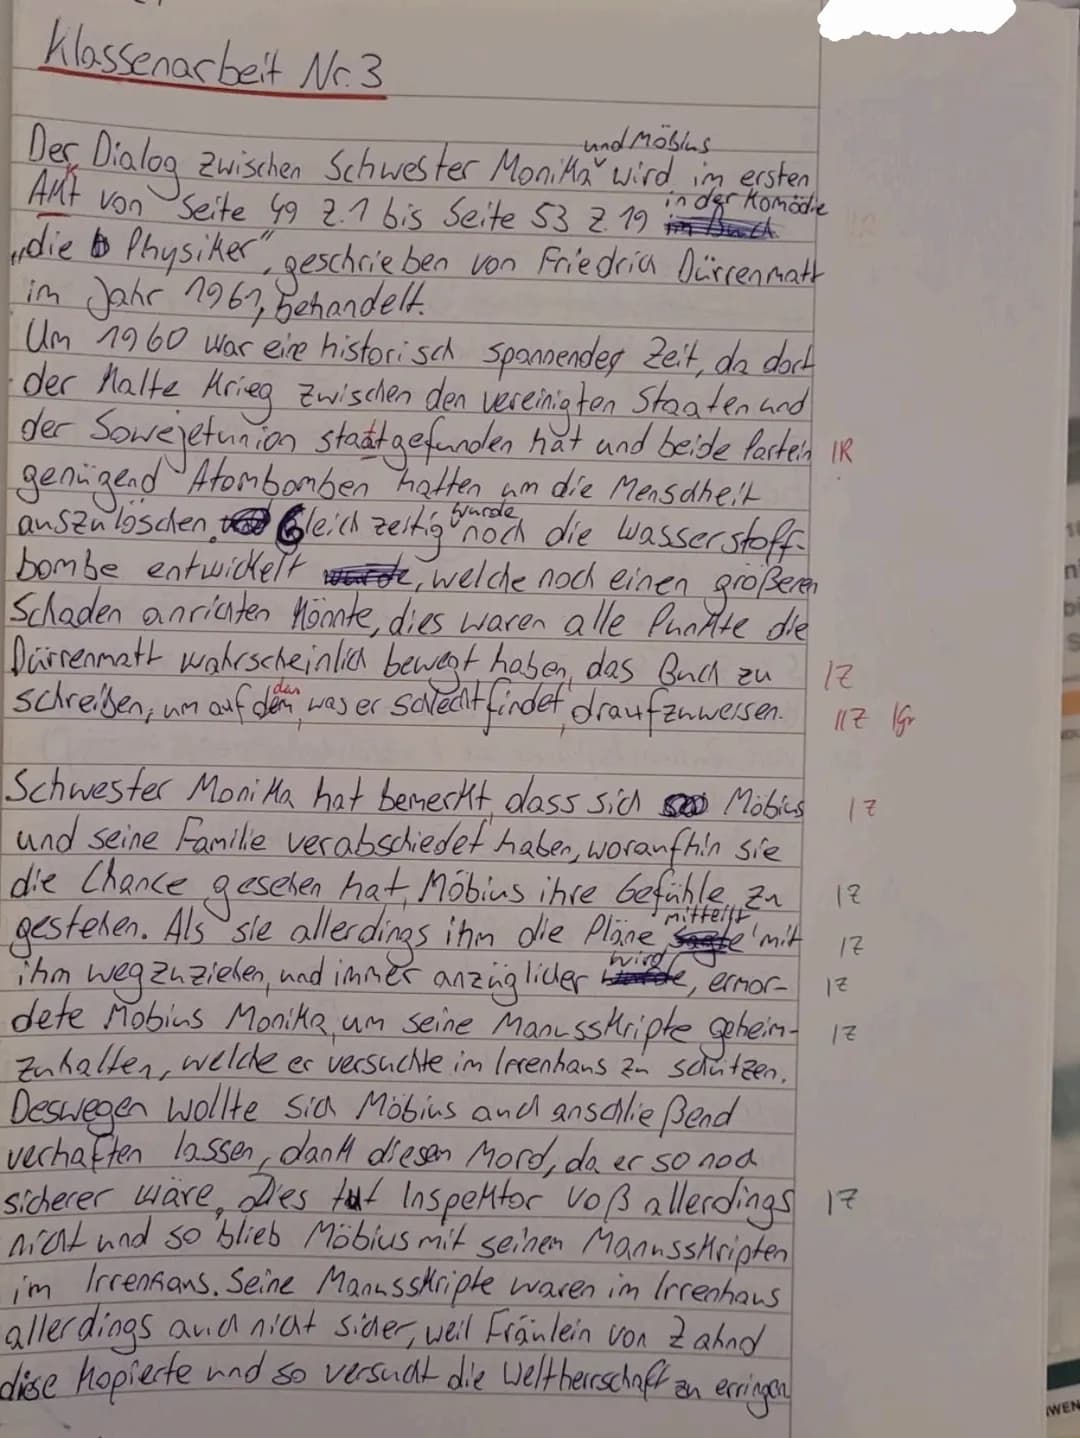 Klassenarbeit Nr. 3
und Möbius
Der Dialog zwischen Schwester Monika wird im ersten
in der Komödie
Akt von Seite 49 Z. 1 bis Seite 53 Z. 19 im Buch
„die Physiker", geschrieben von Friedrich Dürrenmatt
im Jahr 1961, behandelt.
Um 1960 war eine historisch spannendes Zeit, da dort
der Kalte Krieg zwischen den vereinigten Staaten und
der Sowejetunion stattgefunden hat und beide Partein IR
genügend Atombomben hatten um die Menschheit
wurde
auszulöschen. Gleichzeitig noch die Wasserstoff-
bombe entwickelt wurde, welche noch einen größeren
Schaden anrichten könnte, dies waren alle Punkte die
Dürrenmatt wahrscheinlich bewegt haben, das Buch zu IZ
das
schreiben, um auf dem, was er schlecht findet, draufzuweisen. IIZ IGr
Schwester Monika hat bemerkt, dass sich Möbius IZ
und seine Familie verabschiedet haben, woraufhin sie
die Chance gesehen hat, Möbius ihre Gefühle zu IZ
mitteilt
gestehen. Als sie allerdings ihm die Pläne sagte mit IZ
wird
ihm wegzuziehen, und immer anzüglicher wurde, ermor- IZ
dete Möbius Monika, um seine Manusskripte geheim- IZ
zuhalten, welche er versuchte im Irrenhaus zu schützen.
Deswegen wollte sich Möbius auch anschließend
verhaften lassen, dank diesen Mord, da er so noch
sicherer wäre. Dies tut Inspektor Voß allerdings IZ
nicht und so blieb Möbius mit seinen Manusskripten
im Irrenhaus. Seine Manusskripte waren im Irrenhaus
allerdings auch nicht sicher, weil Fräulein von Zahnd
diese kopierte und so versucht die Weltherrschaft zu erringen